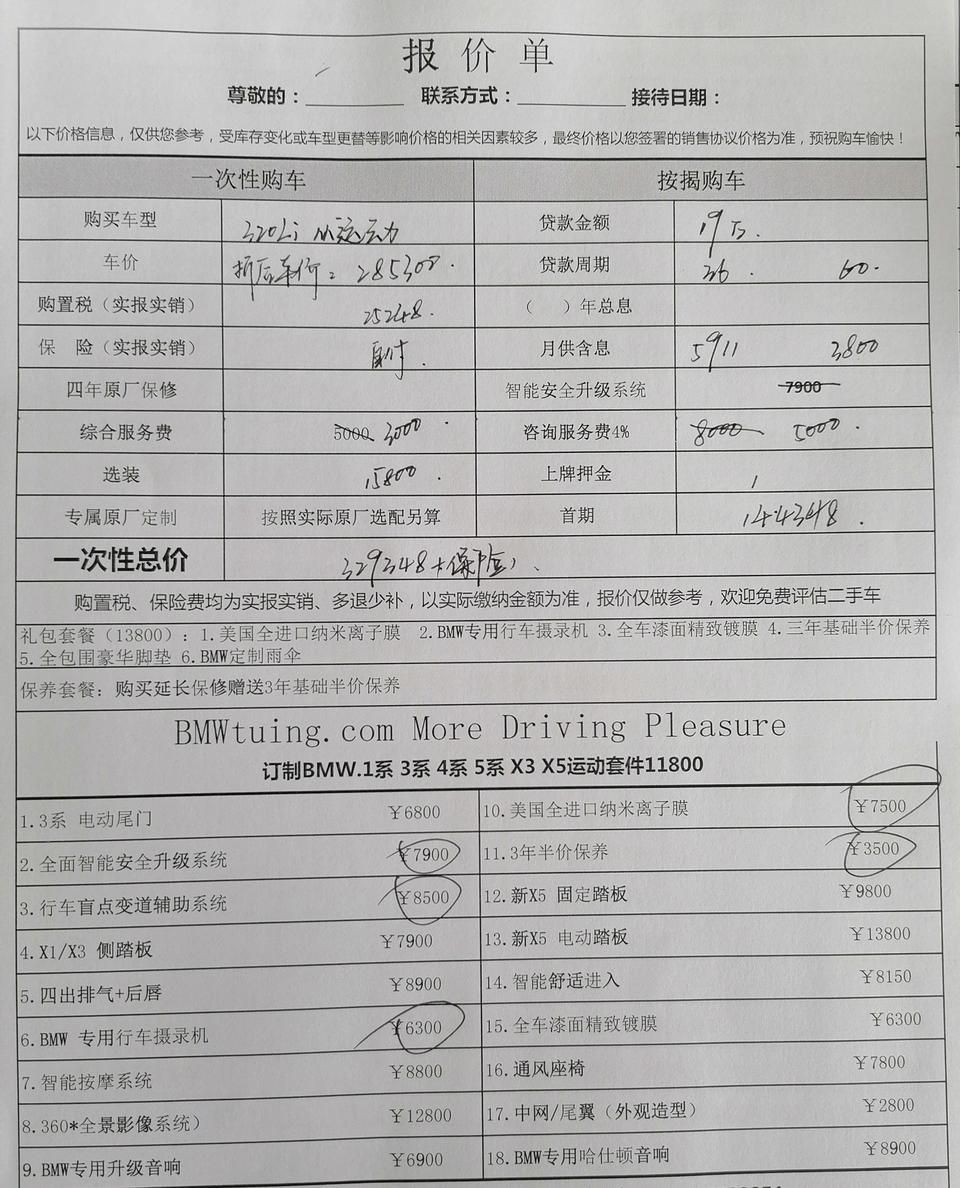 报价单
尊敬的：________ 联系方式：________ 接待日期：
以下价格信息，仅供您参考，受库存变化或车型更替等影响价格的相关因素较多，最终价格以您签署的销售协议价格为准，预祝购车愉快！
一次性购车 按揭购车
购买车型 320Li M运动 贷款金额 19万.
车价 折后车价：285300. 贷款周期 36. 60.
购置税（实报实销） 25248. （ ）年总息
保 险（实报实销） 自付. 月供含息 5911 3800
四年原厂保修 智能安全升级系统 7900
综合服务费 5000 3000. 咨询服务费4% 8000 5000.
选装 15800. 上牌押金 /
专属原厂定制 按照实际原厂选配另算 首期 144348.
一次性总价 329348+保险
购置税、保险费均为实报实销、多退少补，以实际缴纳金额为准，报价仅做参考，欢迎免费评估二手车
礼包套餐（13800）：1.美国全进口纳米离子膜 2.BMW专用行车摄录机 3.全车漆面精致镀膜 4.三年基础半价保养
5.全包围豪华脚垫 6.BMW定制雨伞
保养套餐：购买延长保修赠送3年基础半价保养
BMWtuing.com More Driving Pleasure
订制BMW.1系 3系 4系 5系 X3 X5运动套件11800
1.3系 电动尾门 ￥6800 10.美国全进口纳米离子膜 ￥7500
2.全面智能安全升级系统 ￥7900 11.3年半价保养 ￥3500
3.行车盲点变道辅助系统 ￥8500 12.新X5 固定踏板 ￥9800
4.X1/X3 侧踏板 ￥7900 13.新X5 电动踏板 ￥13800
5.四出排气+后唇 ￥8900 14.智能舒适进入 ￥8150
6.BMW 专用行车摄录机 ￥6300 15.全车漆面精致镀膜 ￥6300
7.智能按摩系统 ￥8800 16.通风座椅 ￥7800
8.360*全景影像系统） ￥12800 17.中网/尾翼（外观造型） ￥2800
9.BMW专用升级音响 ￥6900 18.BMW专用哈仕顿音响 ￥8900